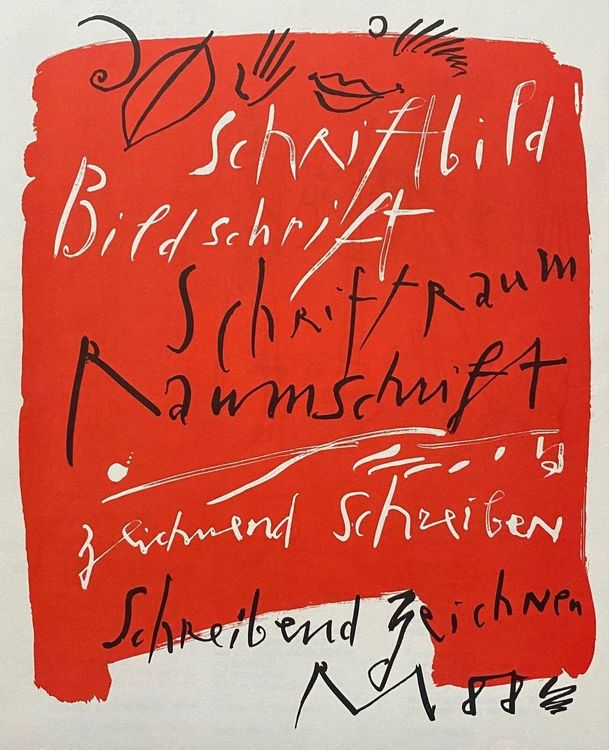 Schriftbild
Bildschrift
Schriftraum
Raumschrift
zeichnend Schreiben
Schreibend zeichnen
M 88